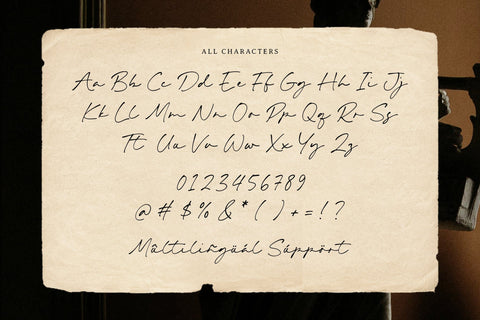 ALL CHARACTERS
Aa Bb Cc Dd Ee Ff Gg Hh Ii Jj
Kk Ll Mm Nn Oo Pp Qq Rr Ss
Tt Uu Vv Ww Xx Yy Zz
0123456789
@ # $ % & * ( ) + = ! ?
Mültilingüàl Sáppört